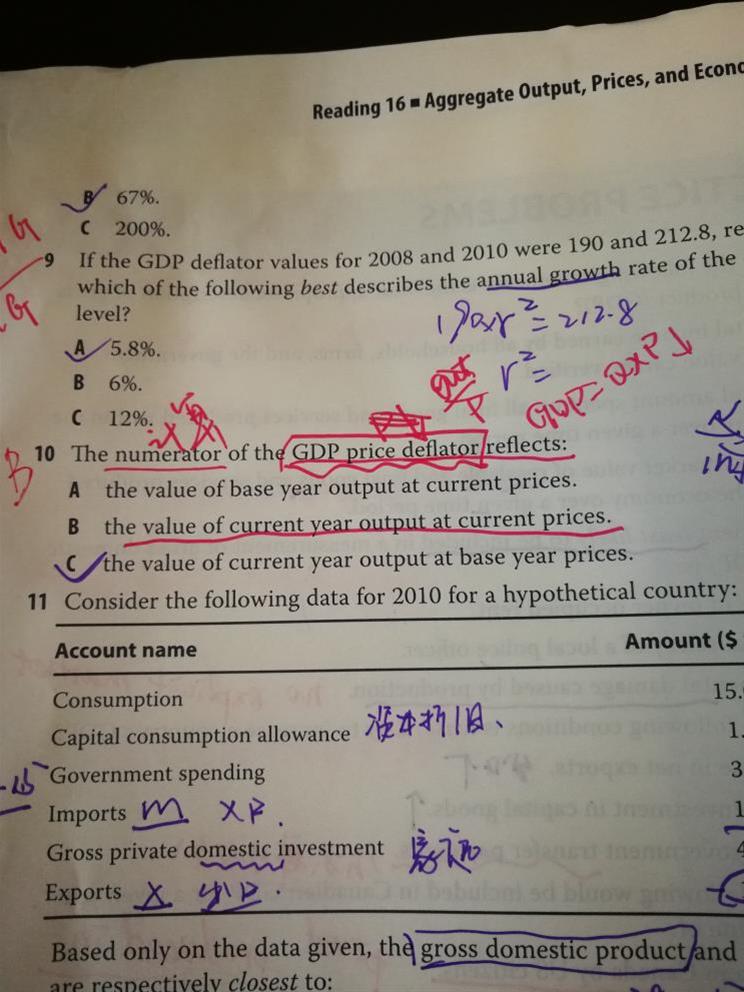 Reading 16 ■ Aggregate Output, Prices, and Econo
B 67%.
C 200%.
9 If the GDP deflator values for 2008 and 2010 were 190 and 212.8, re
which of the following best describes the annual growth rate of the
level?
190xr²=212.8
A 5.8%.
r²=
B 6%.
GDP=QxP
C 12%.
10 The numerator of the GDP price deflator reflects:
B
A the value of base year output at current prices.
B the value of current year output at current prices.
C the value of current year output at base year prices.
11 Consider the following data for 2010 for a hypothetical country:
Account name Amount ($
Consumption 15.
Capital consumption allowance 资本折旧、 1.
Government spending 3
Imports m 1
Gross private domestic investment 4
Exports X 出口.
Based only on the data given, the gross domestic product and
are respectively closest to: